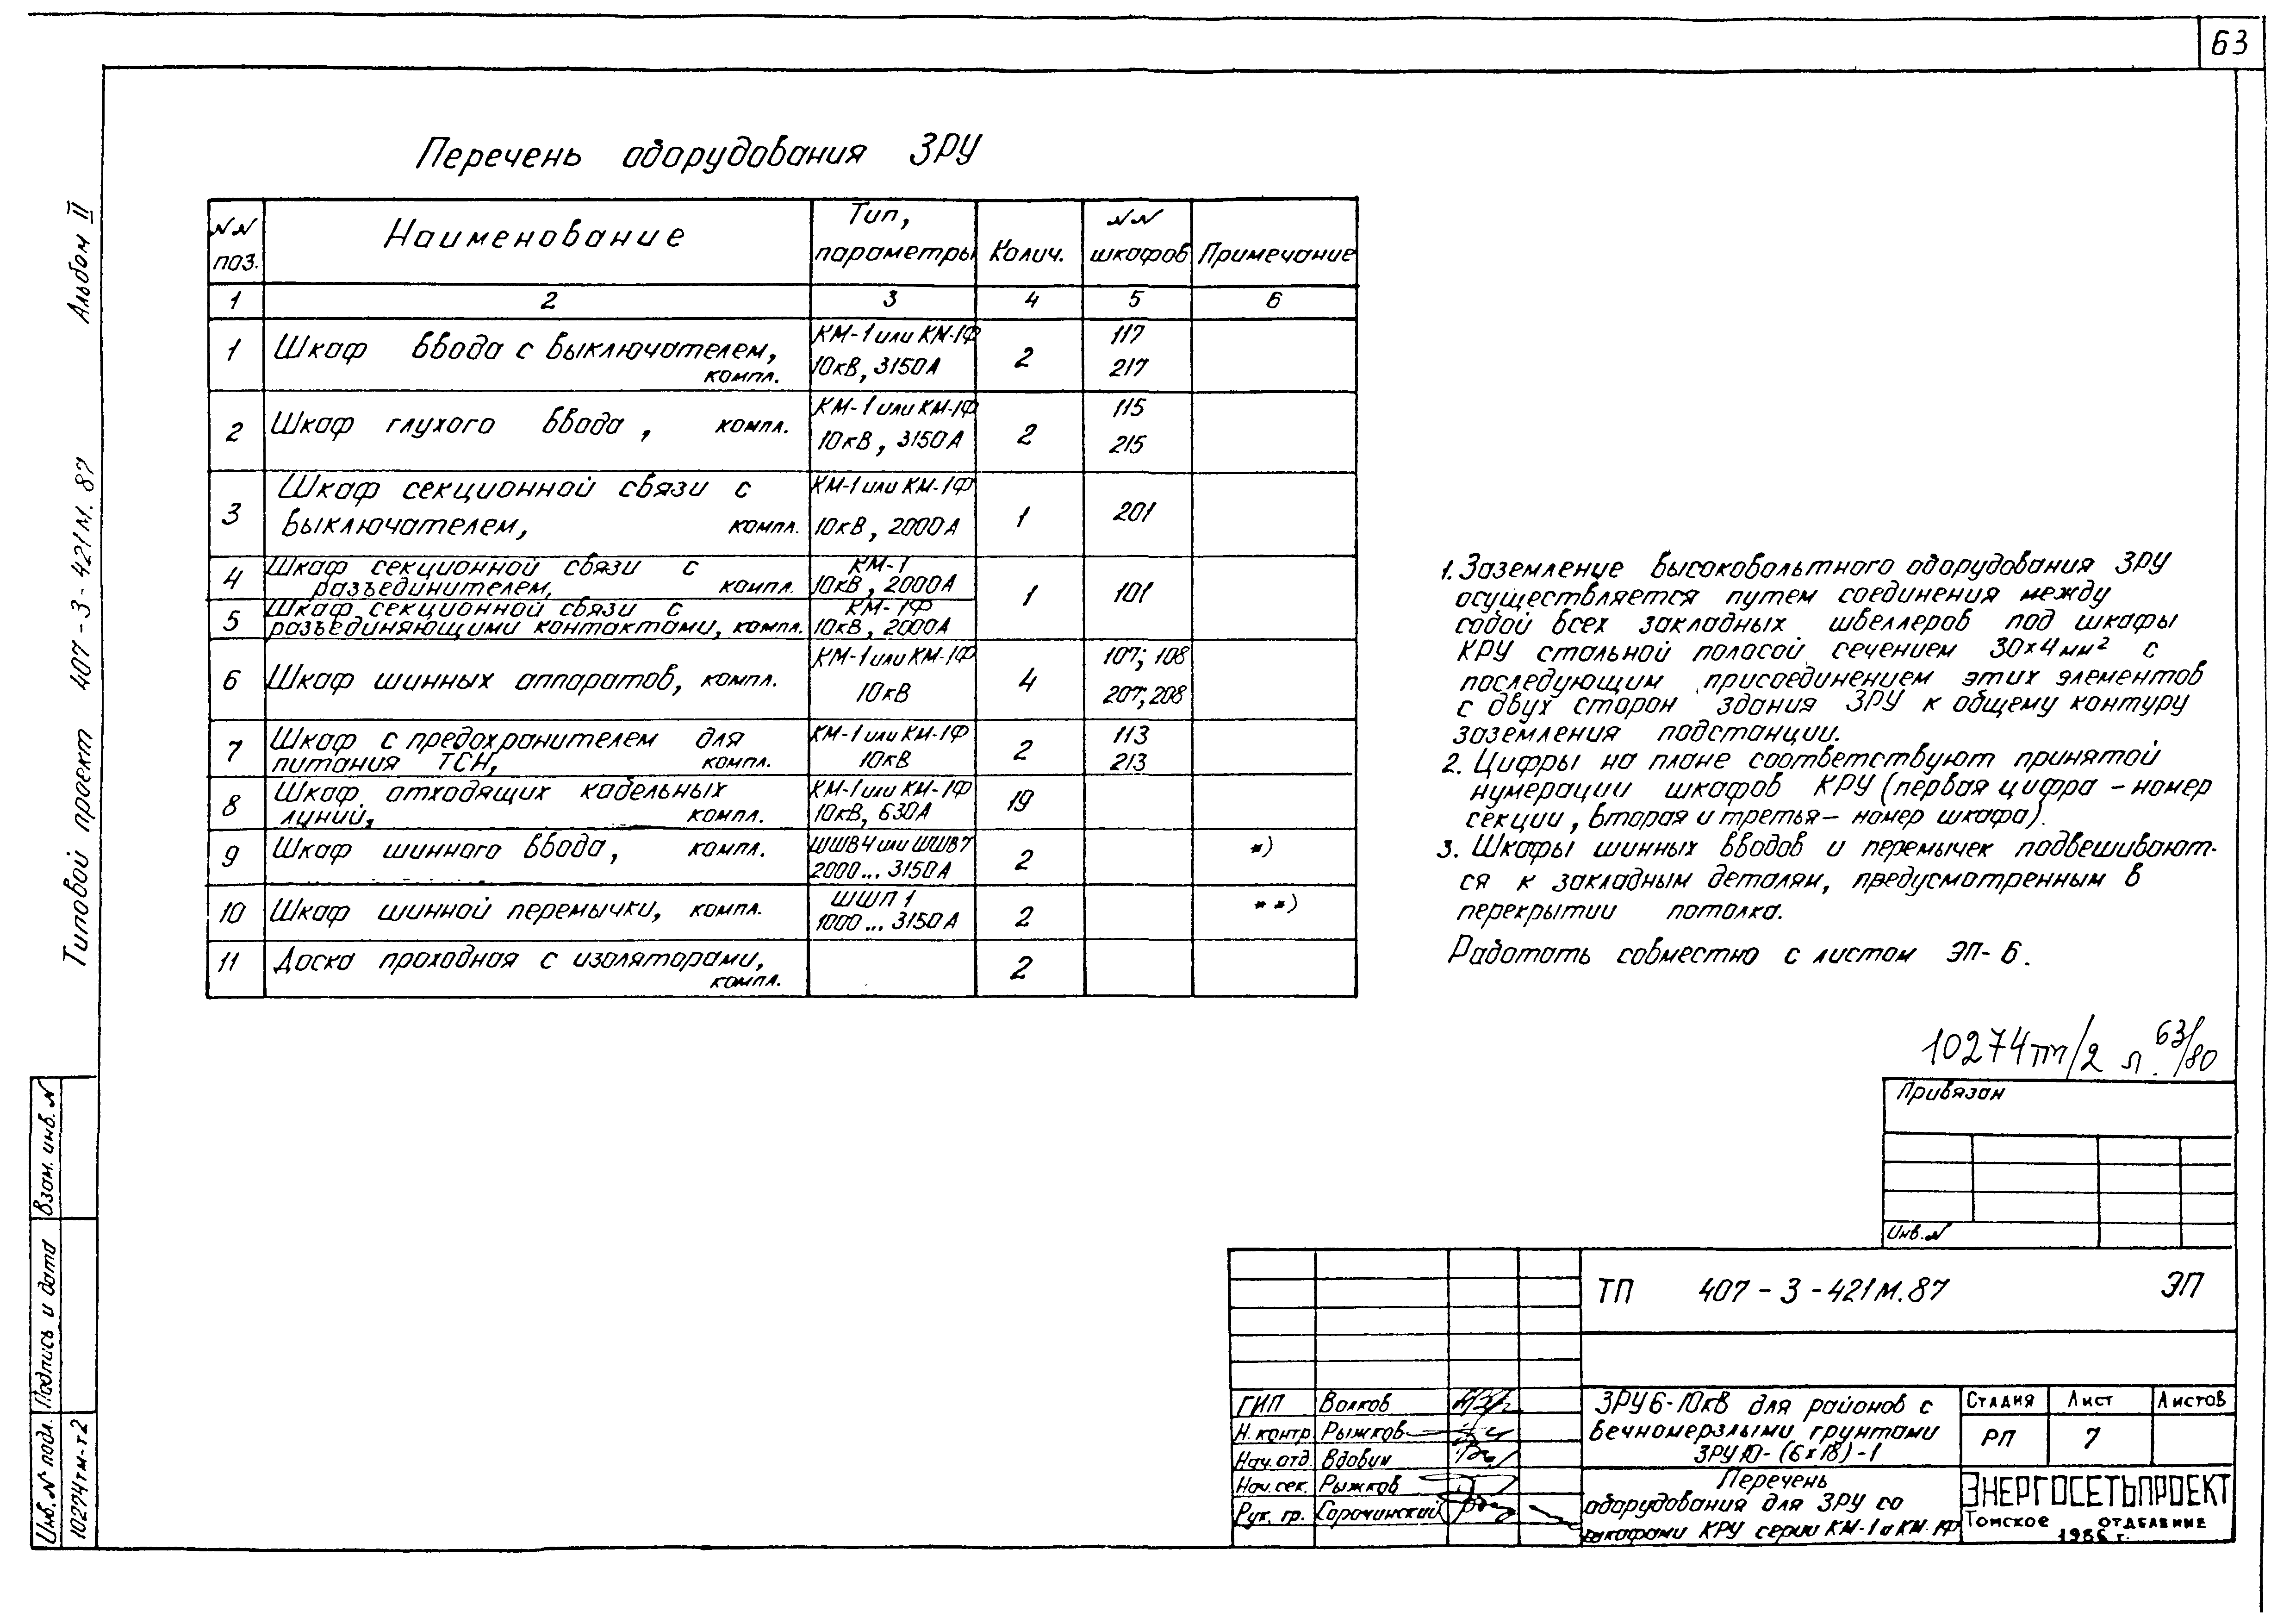 63
Альбом II
Типовой проект 407-3-421м.87
Перечень оборудования ЗРУ
NN поз.
Наименование
Тип, параметры
Колич.
NN шкафов
Примечание
1 2 3 4 5 6
1 Шкаф ввода с выключателем, компл. КМ-1 или КМ-1Ф 10кВ, 3150А 2 117 217
2 Шкаф глухого ввода, компл. КМ-1 или КМ-1Ф 10кВ, 3150А 2 115 215
3 Шкаф секционной связи с выключателем, компл. КМ-1 или КМ-1Ф 10кВ, 2000А 1 201
4 Шкаф секционной связи с разъединителем, компл. КМ-1 10кВ, 2000А 1 101
5 Шкаф секционной связи с разъединяющими контактами, компл. КМ-1Ф 10кВ, 2000А
6 Шкаф шинных аппаратов, компл. КМ-1 или КМ-1Ф 10кВ 4 107; 108 207; 208
7 Шкаф с предохранителем для питания ТСН, компл. КМ-1 или КМ-1Ф 10кВ 2 113 213
8 Шкаф отходящих кабельных линий, компл. КМ-1 или КМ-1Ф 10кВ, 630А 19
9 Шкаф шинного ввода, компл. ШШВ4 или ШШВ7 2000...3150А 2 *)
10 Шкаф шинной перемычки, компл. ШШП1 1000...3150А 2 **)
11 Доска проходная с изоляторами, компл. 2
1. Заземление высоковольтного оборудования ЗРУ
осуществляется путем соединения между
собой всех закладных швеллеров под шкафы
КРУ стальной полосой сечением 30х4мм² с
последующим присоединением этих элементов
с двух сторон здания ЗРУ к общему контуру
заземления подстанции.
2. Цифры на плане соответствуют принятой
нумерации шкафов КРУ (первая цифра - номер
секции, вторая и третья - номер шкафа).
3. Шкафы шинных вводов и перемычек подвешивают-
ся к закладным деталям, предусмотренным в
перекрытии потолка.
Работать совместно с листом ЭП-6.
10274тм/2 л. 63/80
Привязан
Инв. N
ТП 407-3-421м.87 ЭП
ГИП Волков
Н. контр. Рыжков
Нач. отд. Вдовин
Нач. сек. Рыжков
Рук. гр. Сорочинский
ЗРУ 6-10кВ для районов с
вечномерзлыми грунтами
ЗРУ10-(6х18)-1
Стадия Лист Листов
РП 7
Перечень
оборудования для ЗРУ со
шкафами КРУ серии КМ-1 и КМ-1Ф
ЭНЕРГОСЕТЬПРОЕКТ
Томское отделение
1986 г.
Взам. инв. N
Подпись и дата
Инв. N подл.
10274тм-т2